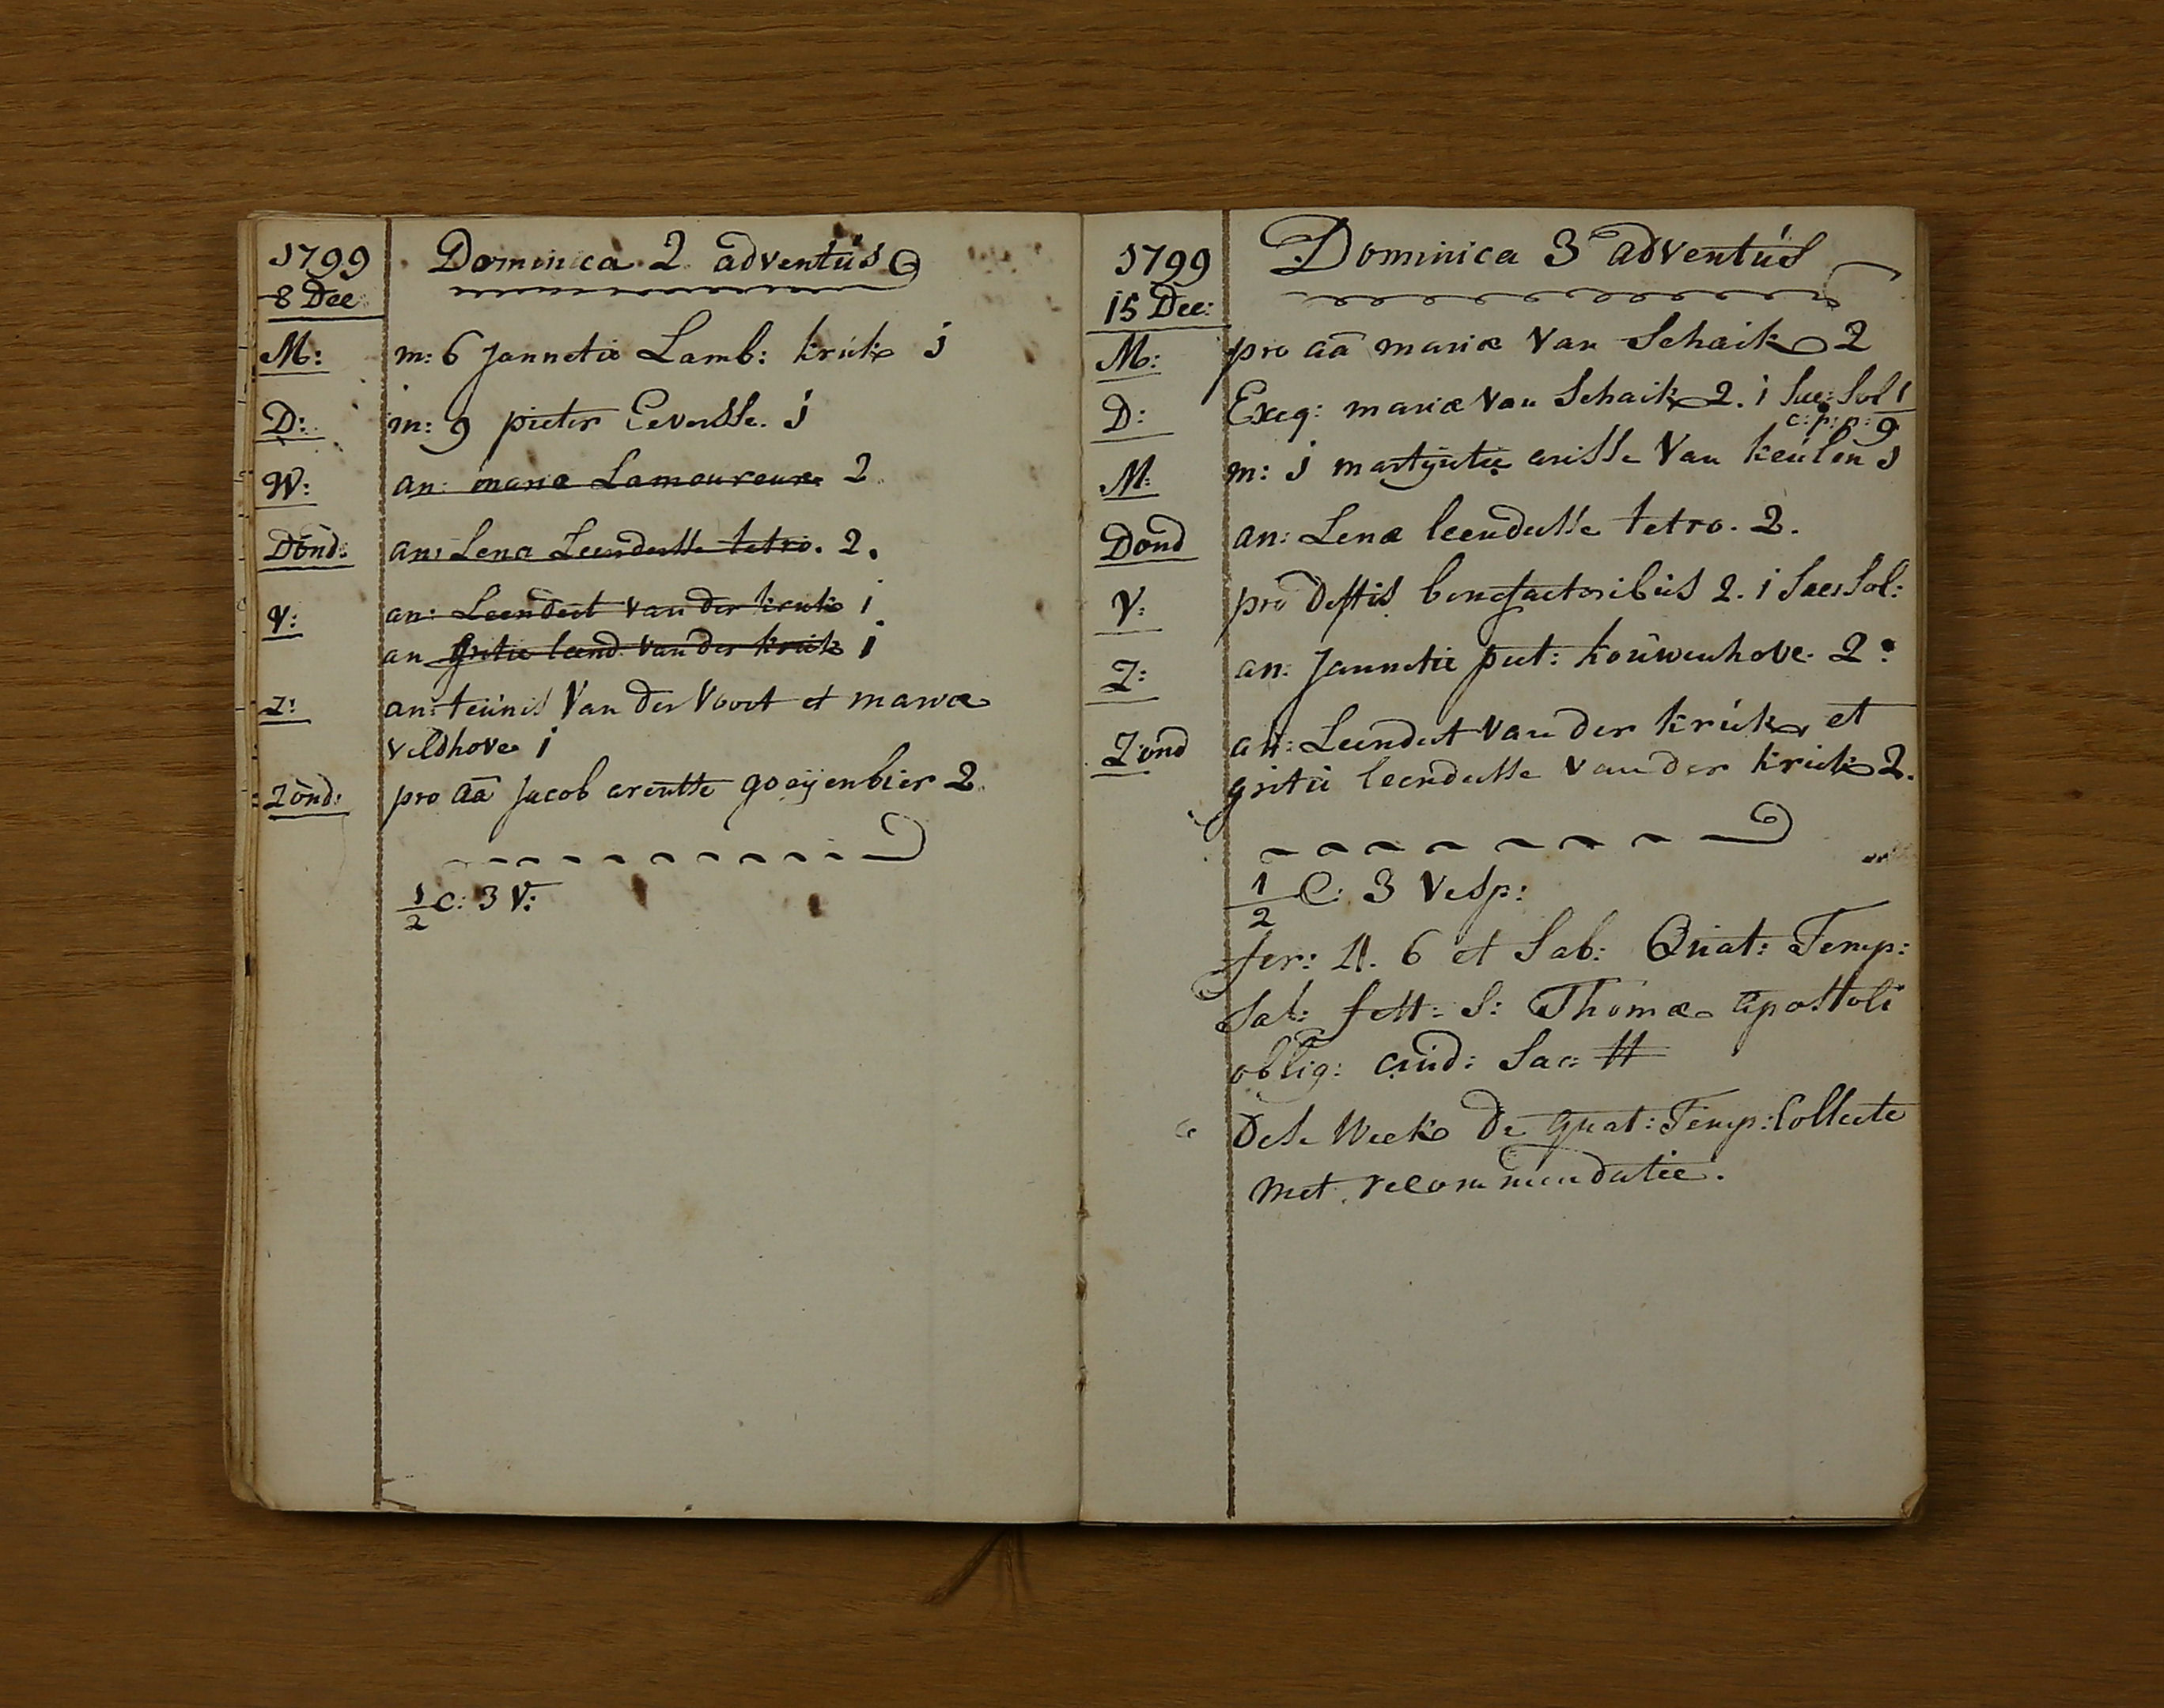 1799
8 Dec:
Dominica 2 adventus
M: m: 6 Jannetie Lamb: kruk j
D: m: 9 pieter Eevertse. j
W: an: mariæ Lamoureux 2
Dond: an: Lena Leendertse tetro. 2.
V: an: Leendert van der kruk i
an gritie leend van der kruk i
Z: an: teunis Van der Voort et mariæ
veldhove i
Zond: pro aā Jacob arentse goeijenbier 2
1/2 C: 3 V:
1799
15 Dec:
Dominica 3 adventus
M: pro aā mariæ Van Schaik 2
D: Exeq: mariæ Van Schaik 2. i Sac: Sol 1
c: p: p: 9
M: m: j martijntie arisse Van keulen j
Dond an: Lenæ leendertse tetro. 2.
V: pro deftis benefactoribus 2. i Sac: Sol:
Z: an: Jannetie piet: kouwenhove 2.
Zond an: Leendert van der kruk et
gritie leendertse van der kruk 2.
1/2 C: 3 Vesp:
fer: 4. 6 et Sab: Quat: Temp:
Sab: fest: S: Thomæ apostoli
oblig: aud: Sac:
Dese Week de quat: Temp: Collecte
met recommendatie.